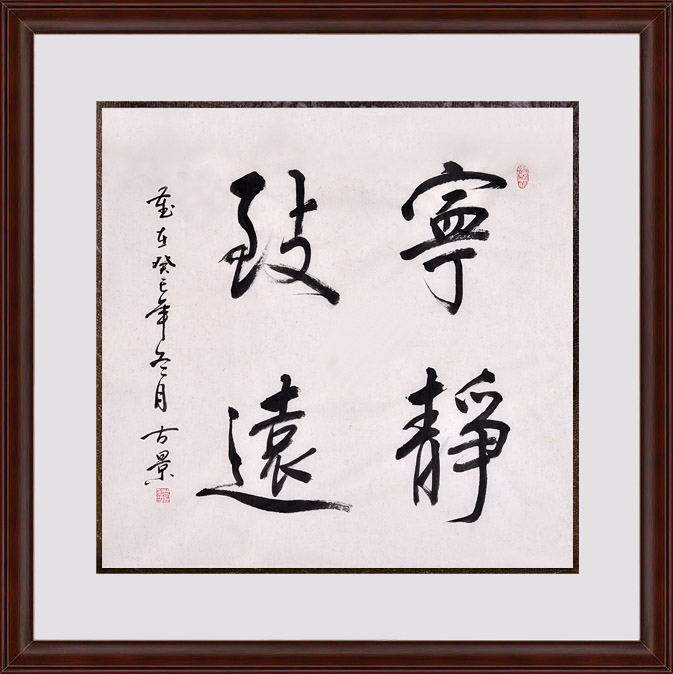 寧靜
致遠
歲在癸巳年冬月 古景